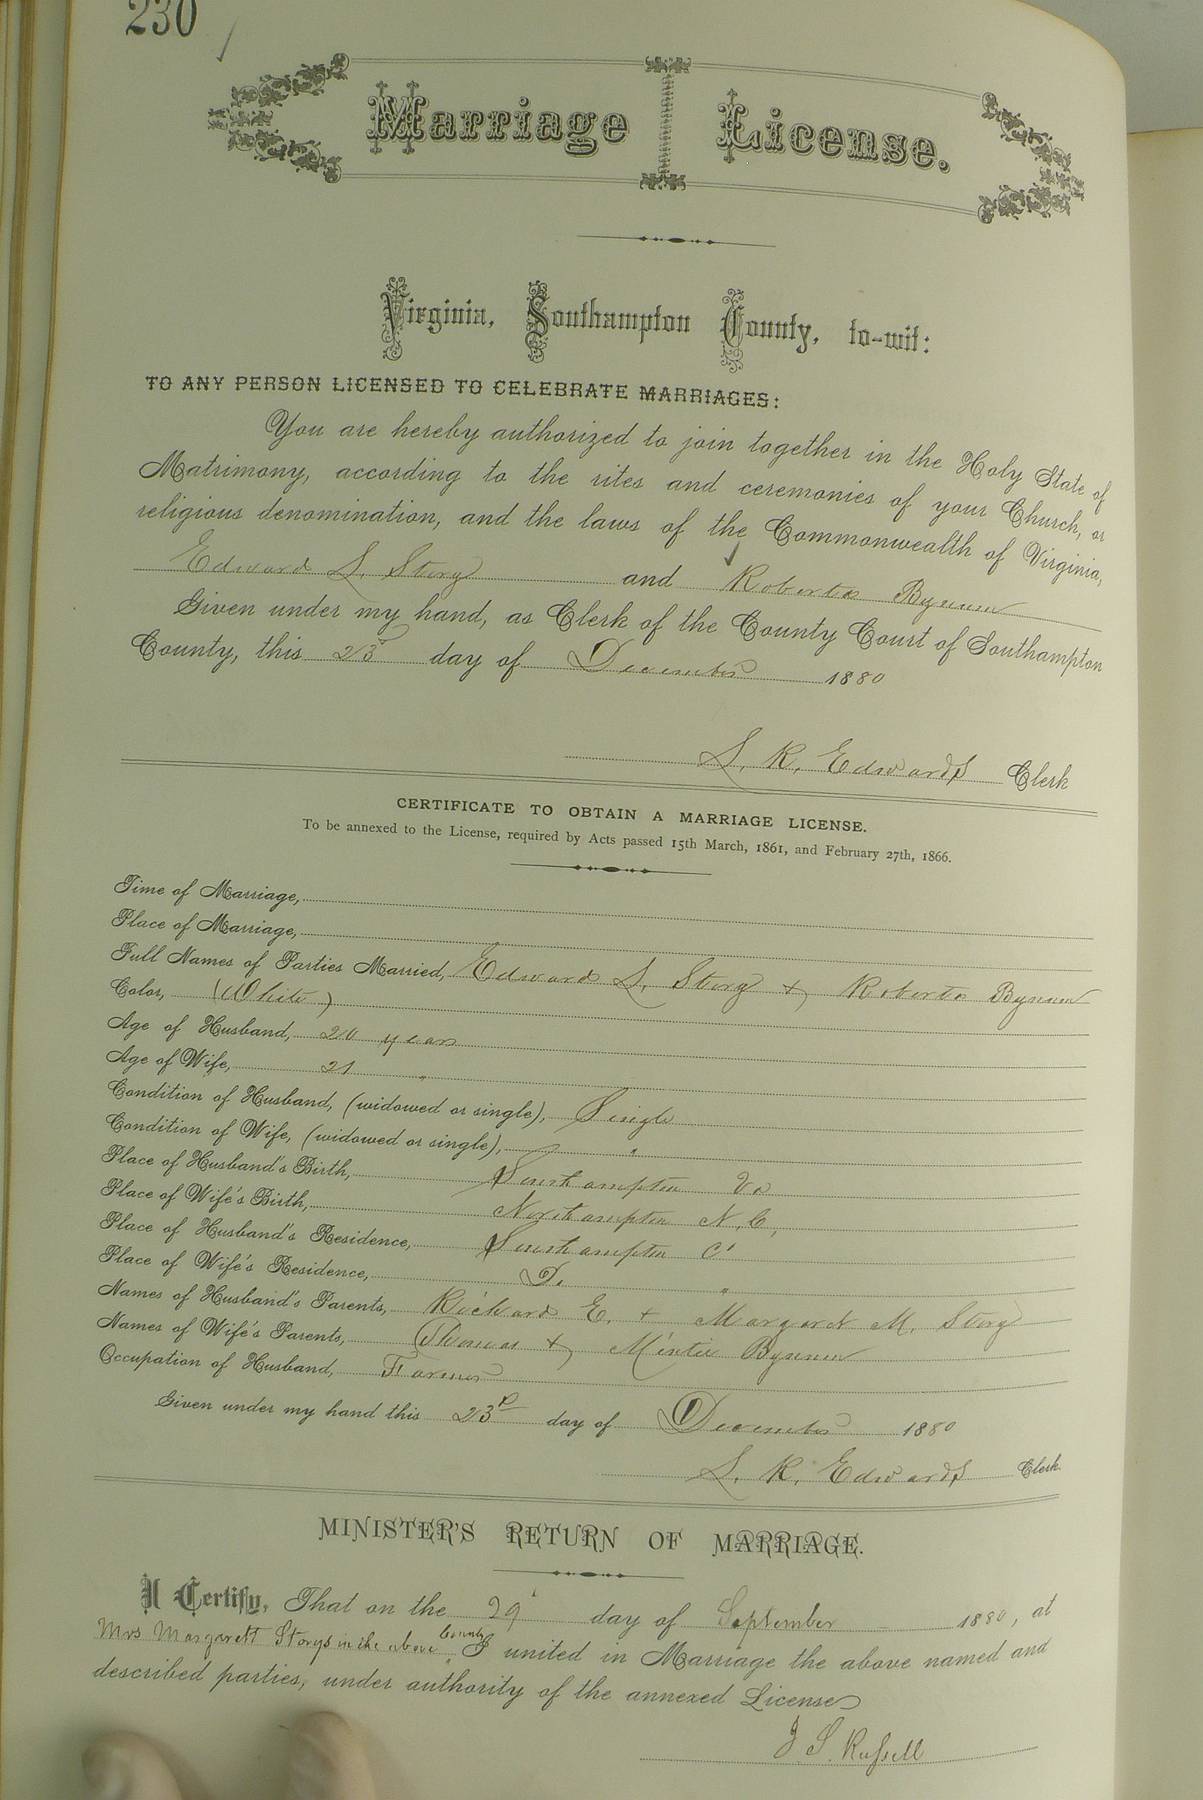 230
Marriage License.
Virginia, Southampton County, to-wit:
TO ANY PERSON LICENSED TO CELEBRATE MARRIAGES:
You are hereby authorized to join together in the Holy State of
Matrimony, according to the rites and ceremonies of your Church, or
religious denomination, and the laws of the Commonwealth of Virginia,
Edward L. Story and Roberta Bynum
Given under my hand, as Clerk of the County Court of Southampton
County, this 23d day of December 1880
L. R. Edwards Clerk
CERTIFICATE TO OBTAIN A MARRIAGE LICENSE.
To be annexed to the License, required by Acts passed 15th March, 1861, and February 27th, 1866.
Time of Marriage,
Place of Marriage,
Full Names of Parties Married, Edward L. Story + Roberta Bynum
Color, (White)
Age of Husband, 20 years
Age of Wife, 21 "
Condition of Husband, (widowed or single), Single
Condition of Wife, (widowed or single), "
Place of Husband's Birth, Southampton Va
Place of Wife's Birth, Northampton N. C.
Place of Husband's Residence, Southampton Co
Place of Wife's Residence, Do. "
Names of Husband's Parents, Richard E. + Margaret M. Story
Names of Wife's Parents, Thomas + Mintie Bynum
Occupation of Husband, Farmer
Given under my hand this 23d day of December 1880
L. R. Edwards Clerk
MINISTER'S RETURN OF MARRIAGE.
I Certify, That on the 29 day of September 1880, at
Mrs Margarett Storys in the above County, I united in Marriage the above named and
described parties, under authority of the annexed License
J S. Russell